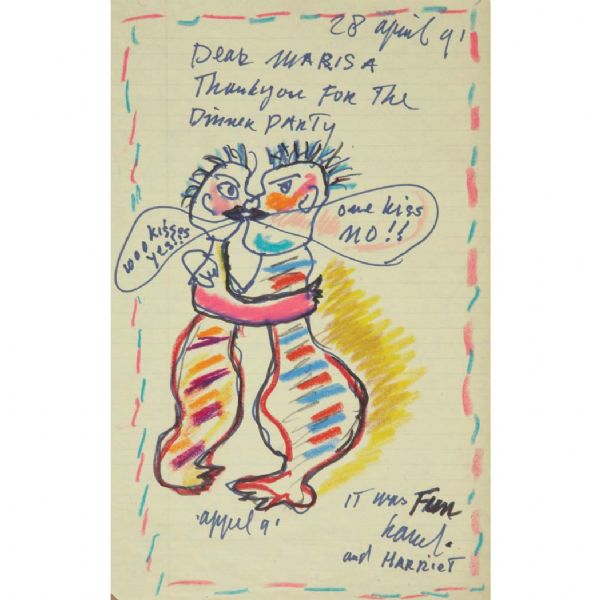 28 april 91
Dear MARISA
Thankyou FOR The
Dinner PARTY
one kiss
NO!!
1000 kisses
yes!!!
appel 91
IT was Fun
karel.
and HARRIET